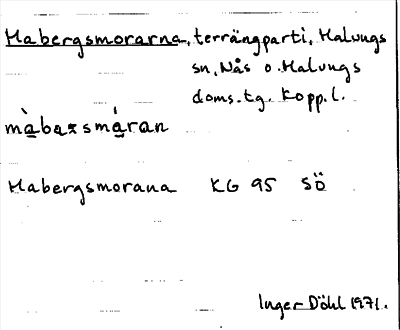 Mabergsmorarna, terrängparti, Malungs
sn, Nås o. Malungs
doms.tg. Kopp.l.
màbaʀsmáran
Mabergsmorana KG 95 SÖ
Inger Döhl 1971.